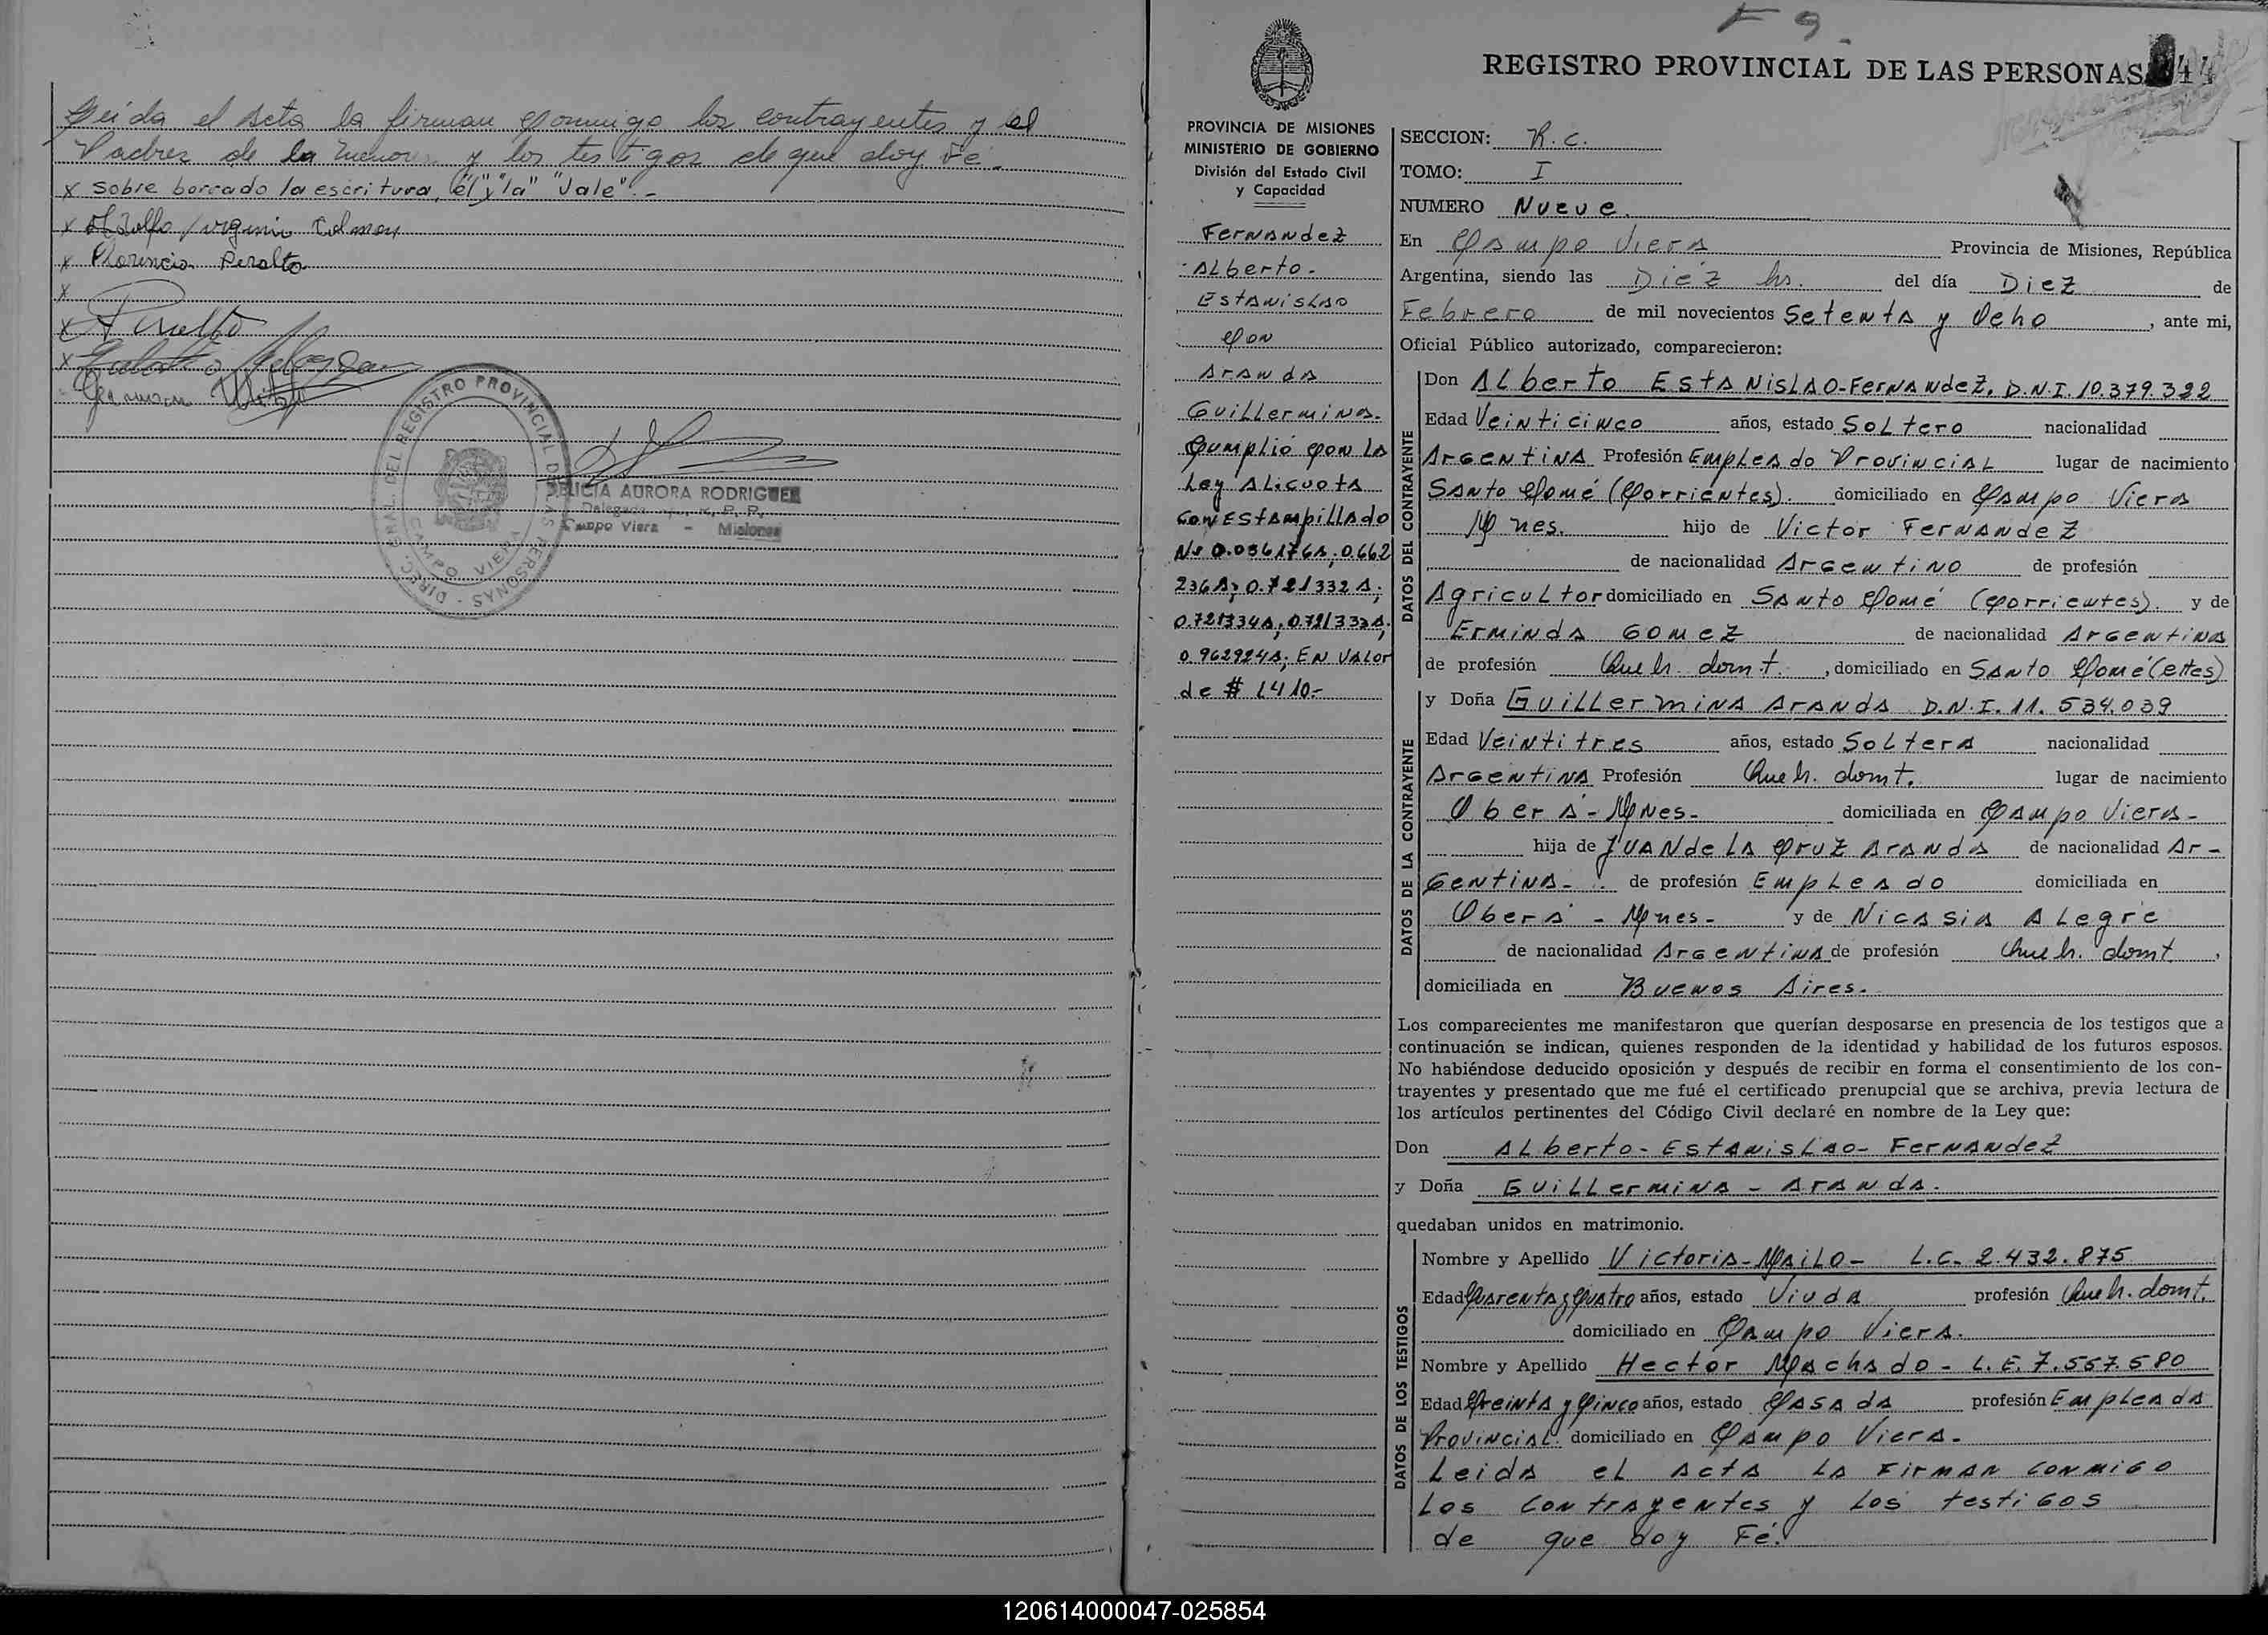 Leida el Acta la firman conmigo los contrayentes y el
Padres de la menor y los testigos de que doy Fé.-
x sobre borrado la escritura, "él" y "la" "Vale".-
x Adolfo Virginio Colman
x Florencia Peralta
x
x Peralta
x
German
DIREC. GRAL. DEL REGISTRO PROVINCIAL DE LAS PERSONAS -
CAMPO VIERA
DELICIA AURORA RODRIGUEZ
Delegada R. P. P.
Campo Viera - Misiones
F 9
REGISTRO PROVINCIAL DE LAS PERSONAS 44
PROVINCIA DE MISIONES
MINISTERIO DE GOBIERNO
División del Estado Civil
y Capacidad
Fernandez
Alberto-
Estanislao
Con
Aranda
Guillermina.
Cumplió con la
Ley Alicuota
con Estampillado
Nº 0.036176A; 0.662
236A; 0.721332A;
0.721334A; 0.721333A;
0.962924A; EN VALOR
de # 1410-
SECCION: R.C.
TOMO: I
NUMERO Nueve.
En Campo Viera Provincia de Misiones, República
Argentina, siendo las Diéz hs. del día Diez de
Febrero de mil novecientos Setenta y Ocho, ante mi,
Oficial Público autorizado, comparecieron:
DATOS DEL CONTRAYENTE
Don Alberto Estanislao-Fernandez. D.N.I. 10.379.322
Edad Veinticinco años, estado Soltero nacionalidad
Argentina Profesión Empleado Provincial lugar de nacimiento
Santo Tomé (Corrientes). domiciliado en Campo Viera
Mnes. hijo de Victor Fernandez
de nacionalidad Argentino de profesión
Agricultor domiciliado en Santo Tomé (Corrientes). y de
Erminda Gomez de nacionalidad Argentina
de profesión Queh. domt. , domiciliado en Santo Tomé (Ctes)
DATOS DE LA CONTRAYENTE
y Doña Guillermina Aranda D.N.I. 11.534.039
Edad Veintitres años, estado Soltera nacionalidad
Argentina Profesión Queh. domt. lugar de nacimiento
Oberá - Mnes- domiciliada en Campo Viera-
hija de Juan de la Cruz Aranda de nacionalidad Ar-
gentina- de profesión Empleado domiciliada en
Oberá - Mnes- y de Nicasia Alegre
de nacionalidad Argentina de profesión Queh. domt ,
domiciliada en Buenos Aires.
Los comparecientes me manifestaron que querían desposarse en presencia de los testigos que a
continuación se indican, quienes responden de la identidad y habilidad de los futuros esposos.
No habiéndose deducido oposición y después de recibir en forma el consentimiento de los con-
trayentes y presentado que me fué el certificado prenupcial que se archiva, previa lectura de
los artículos pertinentes del Código Civil declaré en nombre de la Ley que:
Don Alberto- Estanislao- Fernandez
y Doña Guillermina - Aranda.
quedaban unidos en matrimonio.
DATOS DE LOS TESTIGOS
Nombre y Apellido Victoria-Mailo- L.C. 2.432.875
Edad Cuarenta y Cuatro años, estado Viuda profesión Queh. domt.
domiciliado en Campo Viera.
Nombre y Apellido Hector Machado- L.E. 7.557.580
Edad Treinta y Cinco años, estado Casada profesión Empleada
Provincial. domiciliado en Campo Viera-
Leida el Acta la Firman conmigo
Los contrayentes y los testigos
de que doy Fé.
120614000047-025854